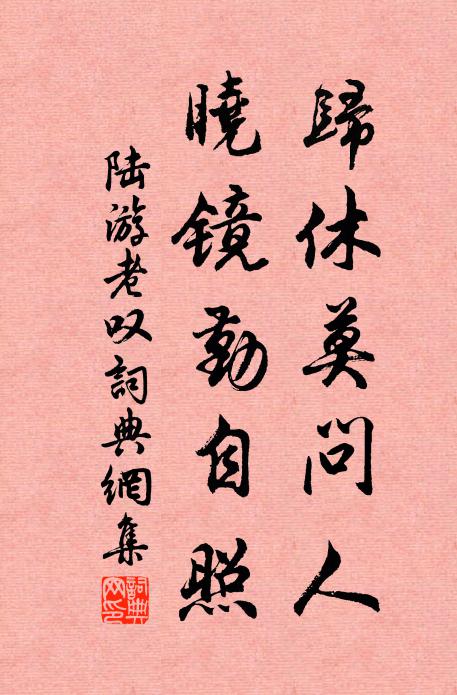 歸休莫問人
曉鏡勤自照
陆游老叹詞典網集
詞典网印